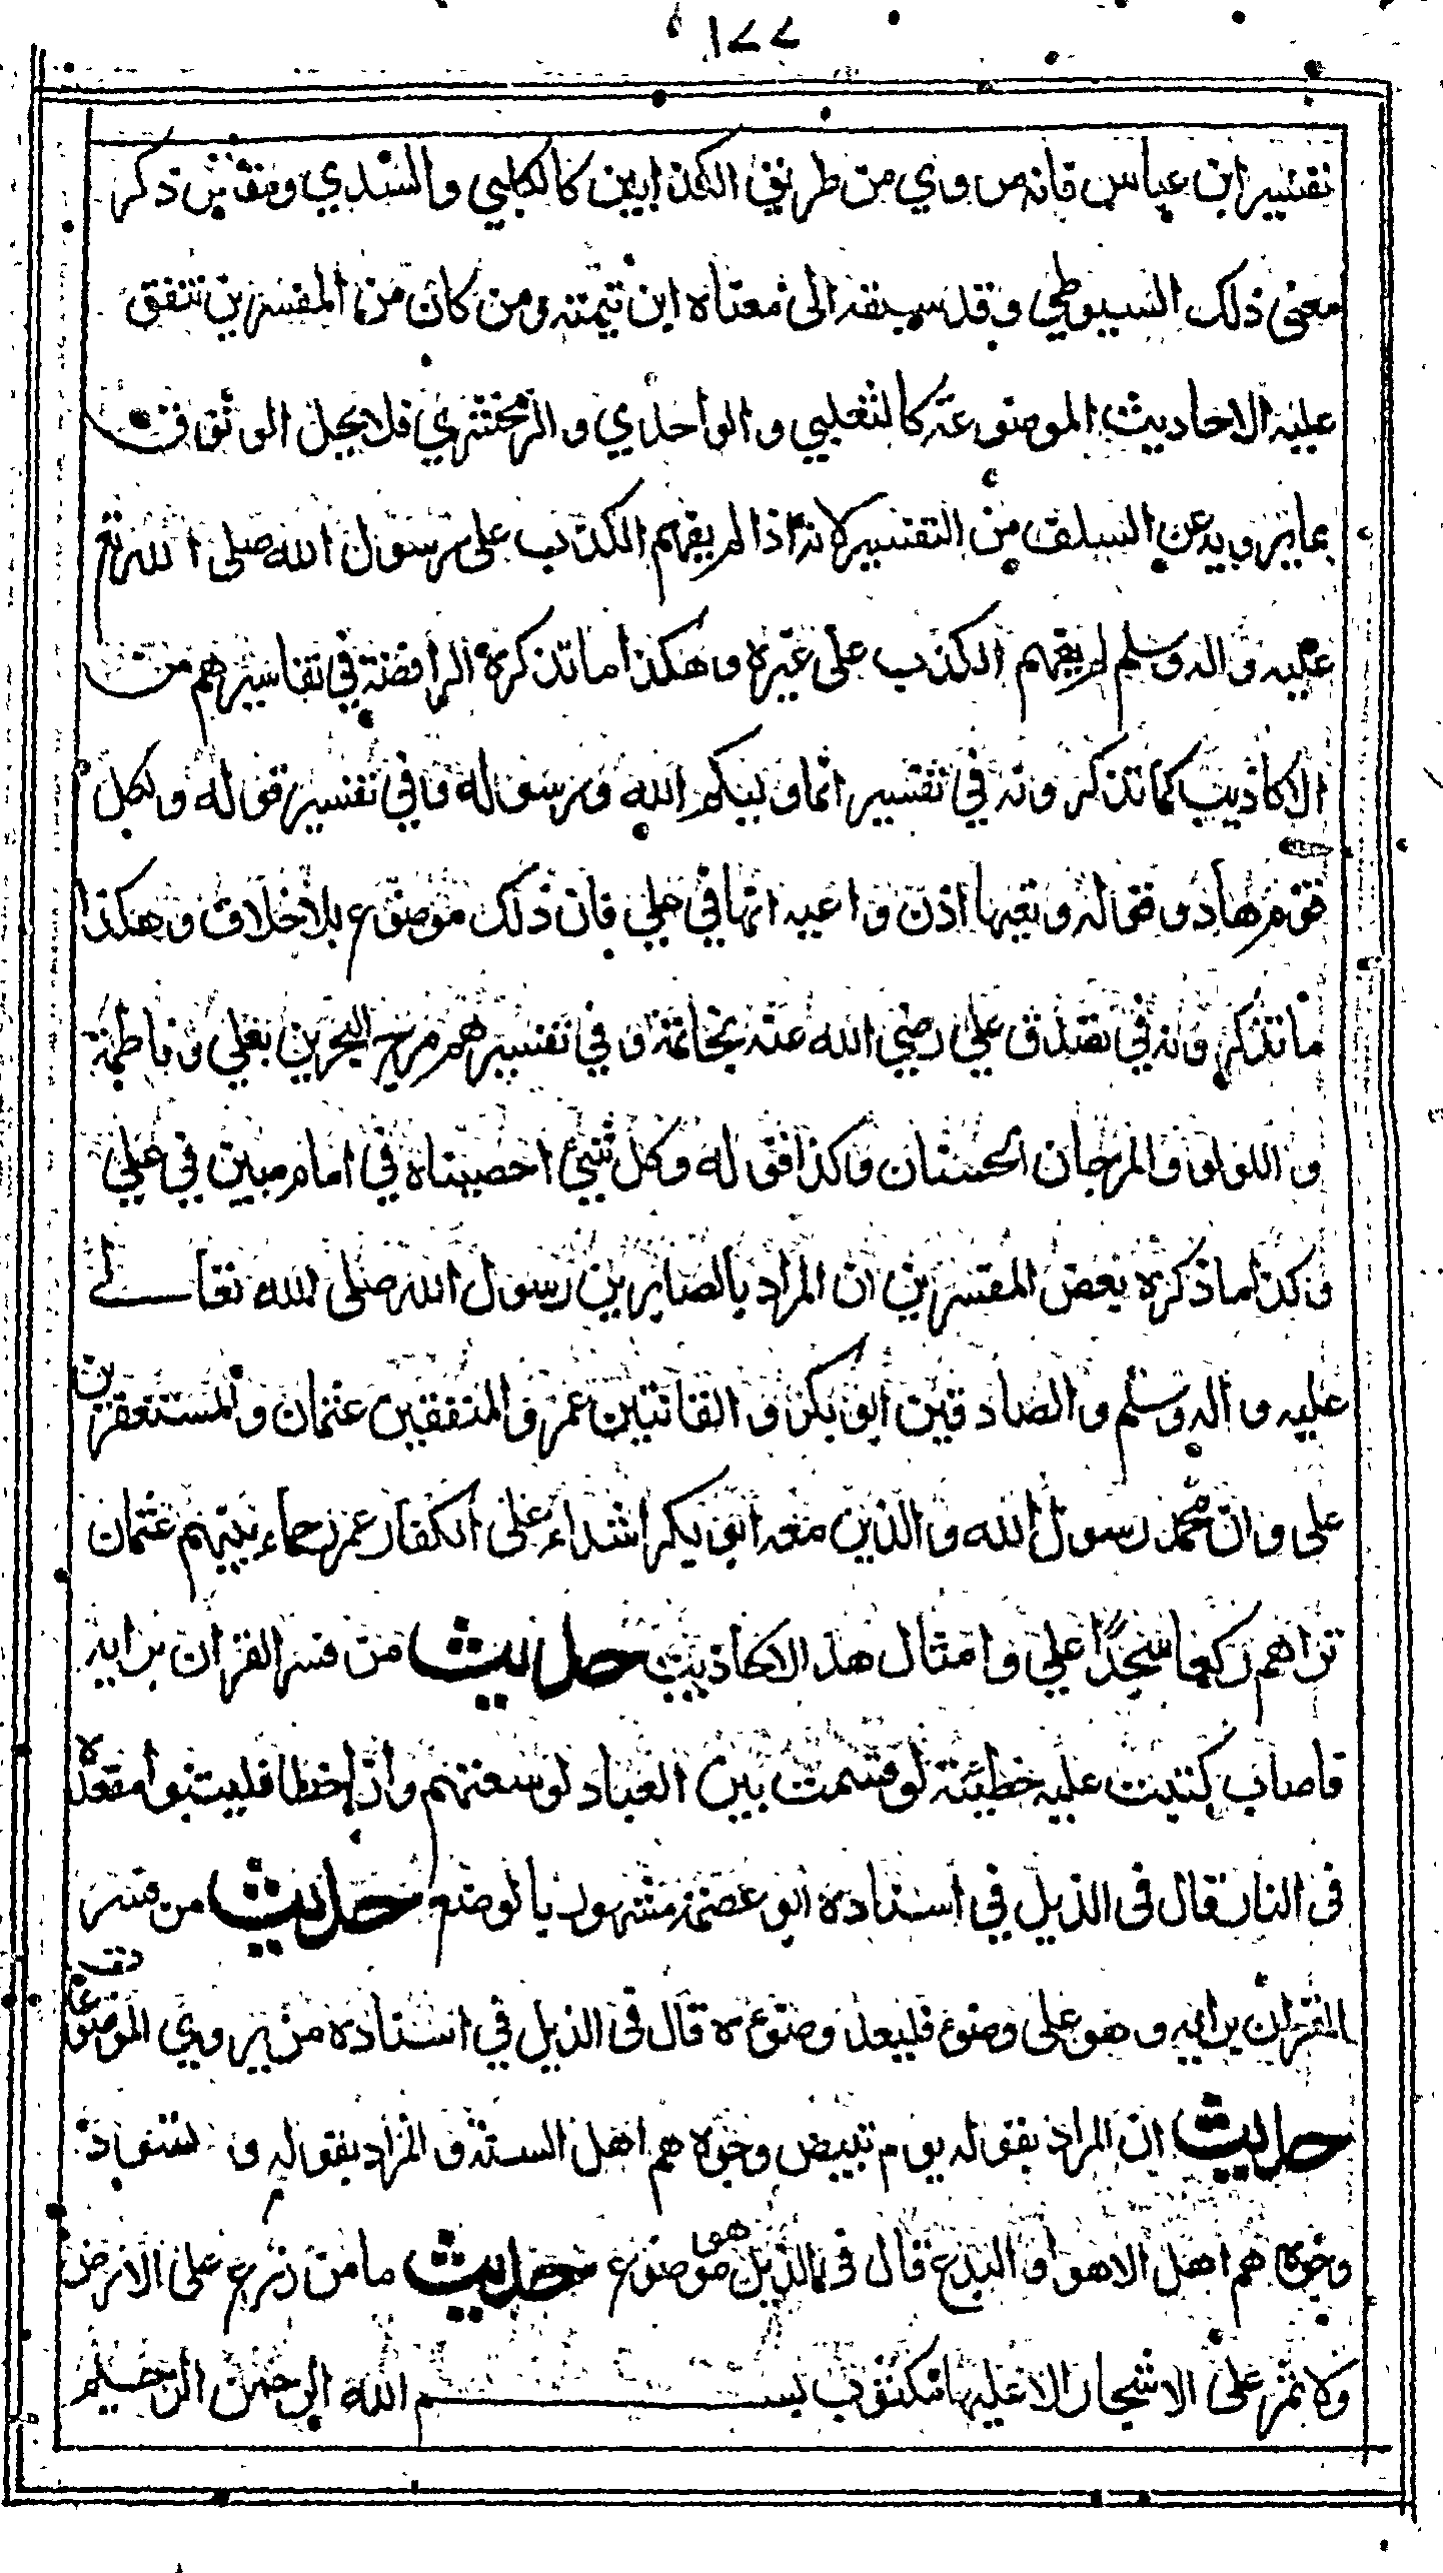 ١٧٧
تفسير ابن عباس فانه مروي من طريق الكذابين كالكلبي والسدي ومقاتل ذكر
معنى ذلك السيوطي وقد سبقه الى معناه ابن تيمية ومن كان من المفسرين تنفق
عليه الاحاديث الموضوعة كالثعلبي والواحدي والزمخشري فلا يحل الوثوق
بما يرويه عن السلف من التفسير لانه اذا لم يفهم الكذب على رسول الله صلى الله تع
عليه واله وسلم لم يفهم الكذب على غيره وهكذا ما تذكره الرافضة في تفاسيرهم من
الاكاذيب كما تذكرونه في تفسير انما وليكم الله ورسوله وفي تفسير قوله ولكل
قوم هاد وقوله وتعيها اذن واعيه انها في علي فان ذلك موضوع بلا خلاف وهكذا
ما تذكرونه في تصدق علي رضي الله عنه بخاتمة وفي تفسيرهم مرج البحرين بعلي وفاطمة
واللولو والمرجان الحسنان وكذا قوله وكل شيئ احصيناه في امام مبين في علي
وكذا ما ذكره بعض المفسرين ان المراد بالصابرين رسول الله صلى الله تعالى
عليه واله وسلم والصادقين ابو بكر والقانتين عمر والمنفقين عثمان والمستغفرين
علي وان محمد رسول الله والذين معه ابو بكر اشداء على الكفار عمر رحماء بينهم عثمان
تراهم ركعا سجدًا علي وامثال هذه الاكاذيب حديث من فسر القران برايه
فاصاب كتبت عليه خطيئة لو قسمت بين العباد لوسعتهم وان اخطا فليتبوا مقعده
فى النار قال فى الذيل في اسناده ابو عصمة مشهور بالوضع حديث من فسر
القران برايه وهو على وضوء فليعد وضوءه قال فى الذيل في اسناده من يروي الموضوعات
حديث ان المراد بقوله يوم تبيض وجوه هم اهل السنة والمراد بقوله و تسود
وجوه هم اهل الاهوا والبدع قال في الذيل هو موضوع حديث ما من زرع على الارض
ولا ثمر على الاشجار الا عليها مكتوب بسم الله الرحمن الرحيم